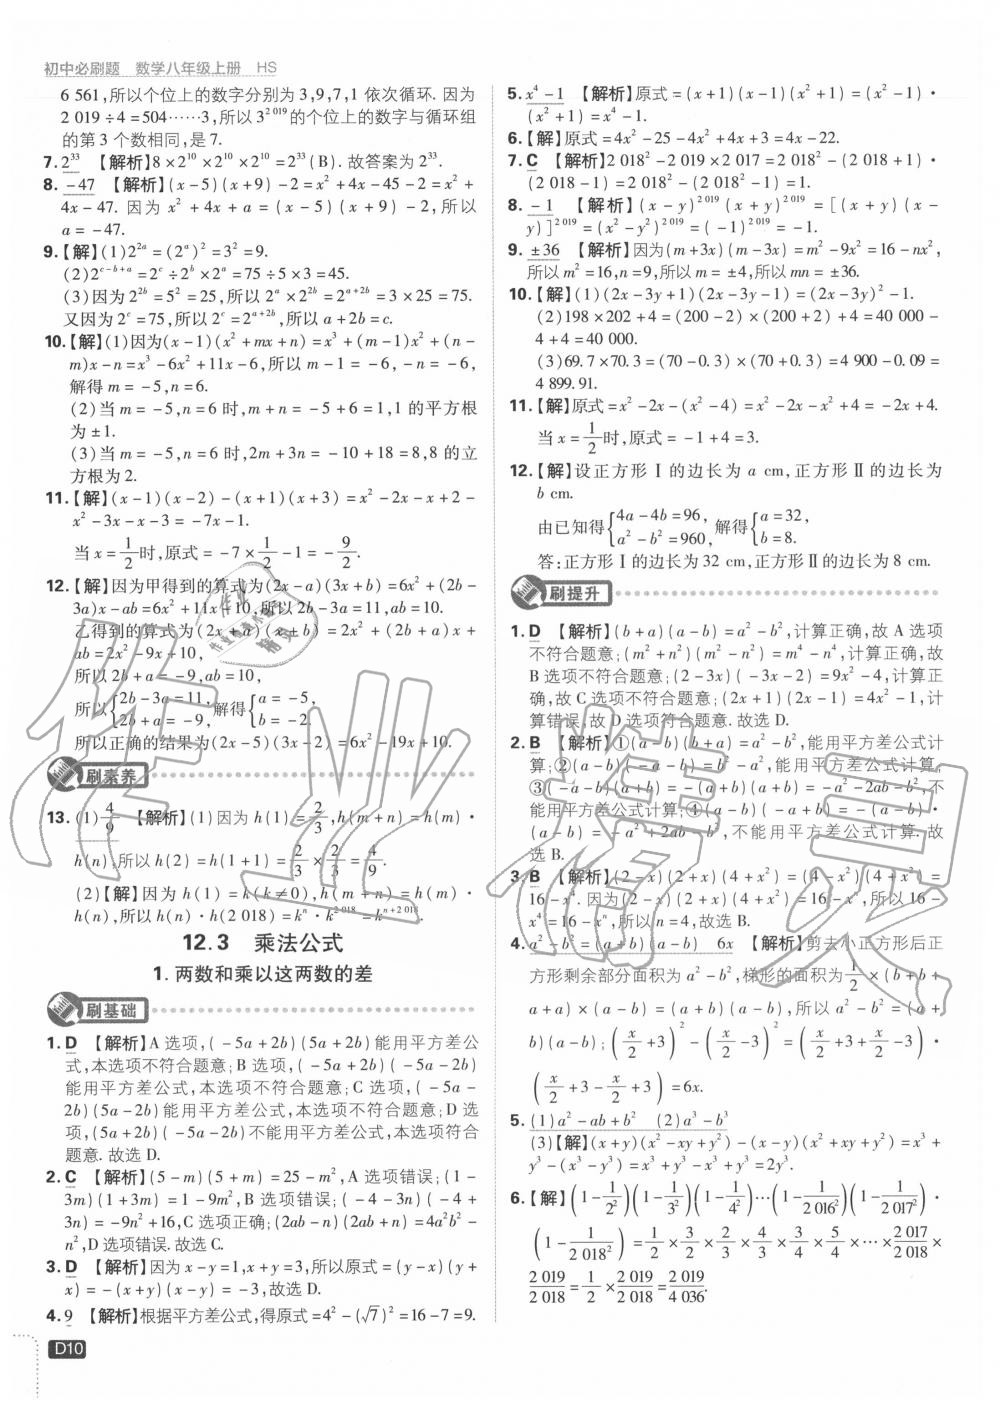 初中必刷题 数学八年级上册 HS
6 561,所以个位上的数字分别为 3,9,7,1 依次循环. 因为
2 019÷4=504……3,所以 3^{2 019}的个位上的数字与循环组
的第 3 个数相同,是 7.
7. 2^{33} 【解析】8×2^{10}×2^{10}×2^{10}=2^{33}(B). 故答案为 2^{33}.
8. -47 【解析】(x-5)(x+9)-2=x^2+4x-45-2=x^2+
4x-47. 因为 x^2+4x+a=(x-5)(x+9)-2,所以
a=-47.
9.【解】(1)2^{2a}=(2^a)^2=3^2=9.
(2)2^{c-b+a}=2^c÷2^b×2^a=75÷5×3=45.
(3)因为 2^{2b}=5^2=25,所以 2^a×2^{2b}=2^{a+2b}=3×25=75.
又因为 2^c=75,所以 2^c=2^{a+2b},所以 a+2b=c.
10.【解】(1)因为(x-1)(x^2+mx+n)=x^3+(m-1)x^2+(n-
m)x-n=x^3-6x^2+11x-6,所以 m-1=-6,-n=-6,
解得 m=-5,n=6.
(2)当 m=-5,n=6 时,m+n=-5+6=1,1 的平方根
为±1.
(3)当 m=-5,n=6 时,2m+3n=-10+18=8,8 的立
方根为 2.
11.【解】(x-1)(x-2)-(x+1)(x+3)=x^2-2x-x+2-
x^2-3x-x-3=-7x-1.
当 x=1/2时,原式=-7×1/2-1=-9/2.
12.【解】因为甲得到的算式为(2x-a)(3x+b)=6x^2+(2b-
3a)x-ab=6x^2+11x+10,所以 2b-3a=11,ab=10.
乙得到的算式为(2x+a)(x+b)=2x^2+(2b+a)x+
ab=2x^2-9x+10,
所以 2b+a=-9,ab=10,
所以{2b-3a=11, 2b+a=-9,解得{a=-5, b=-2.
所以正确的结果为(2x-5)(3x-2)=6x^2-19x+10.
刷素养
13. (1)4/9 【解析】(1)因为 h(1)=2/3,h(m+n)=h(m)·
h(n),所以 h(2)=h(1+1)=2/3×2/3=4/9.
(2)【解】因为 h(1)=k(k≠0),h(m+n)=h(m)·
h(n),所以 h(n)·h(2 018)=k^n·k^{2 018}=k^{n+2 018}.
12.3 乘法公式
1. 两数和乘以这两数的差
刷基础
1. D 【解析】A 选项,(-5a+2b)(5a+2b)能用平方差公
式,本选项不符合题意;B 选项,(-5a+2b)(-5a-2b)
能用平方差公式,本选项不符合题意;C 选项,(-5a-
2b)(5a-2b)能用平方差公式,本选项不符合题意;D 选
项,(5a+2b)(-5a-2b)不能用平方差公式,本选项符合
题意. 故选 D.
2. C 【解析】(5-m)(5+m)=25-m^2,A 选项错误;(1-
3m)(1+3m)=1-9m^2,B 选项错误;(-4-3n)(-4+
3n)=-9n^2+16,C 选项正确;(2ab-n)(2ab+n)=4a^2b^2-
n^2,D 选项错误. 故选 C.
3. D 【解析】因为 x-y=1,x+y=3,所以原式=(y-x)(y+
x)=-(x+y)(x-y)=-3,故选 D.
4. 9 【解析】根据平方差公式,得原式=4^2-(√7)^2=16-7=9.
D10
5. x^4-1 【解析】原式=(x+1)(x-1)(x^2+1)=(x^2-1)·
(x^2+1)=x^4-1.
6.【解】原式=4x^2-25-4x^2+4x+3=4x-22.
7. C 【解析】2 018^2-2 019×2 017=2 018^2-(2 018+1)·
(2 018-1)=2 018^2-(2 018^2-1)=1.
8. -1 【解析】(x-y)^{2 019}(x+y)^{2 019}=[(x+y)(x-
y)]^{2 019}=(x^2-y^2)^{2 019}=(-1)^{2 019}=-1.
9. ±36 【解析】因为(m+3x)(m-3x)=m^2-9x^2=16-nx^2,
所以 m^2=16,n=9,所以 m=±4,所以 mn=±36.
10.【解】(1)(2x-3y+1)(2x-3y-1)=(2x-3y)^2-1.
(2)198×202+4=(200-2)×(200+2)+4=40 000-
4+4=40 000.
(3)69.7×70.3=(70-0.3)×(70+0.3)=4 900-0.09=
4 899.91.
11.【解】原式=x^2-2x-(x^2-4)=x^2-2x-x^2+4=-2x+4.
当 x=1/2时,原式=-1+4=3.
12.【解】设正方形Ⅰ的边长为 a cm,正方形Ⅱ的边长为
b cm.
由已知得{4a-4b=96, a^2-b^2=960,解得{a=32, b=8.
答:正方形Ⅰ的边长为 32 cm,正方形Ⅱ的边长为 8 cm.
刷提升
1. D 【解析】(b+a)(a-b)=a^2-b^2,计算正确,故 A 选项
不符合题意;(m^2+n^2)(m^2-n^2)=m^4-n^4,计算正确,故
B 选项不符合题意;(2-3x)(-3x-2)=9x^2-4,计算正
确,故 C 选项不符合题意;(2x+1)(2x-1)=4x^2-1,计
算错误,故 D 选项符合题意. 故选 D.
2. B 【解析】①(a-b)(b+a)=a^2-b^2,能用平方差公式计
算;②(a-b)(-a-b)=b^2-a^2,能用平方差公式计算;
③(-a-b)(a+b)=-(a+b)(a+b)=-a^2-2ab-b^2,不
能用平方差公式计算;④(a-b)(-a+b)=-(a-b)·
(a-b)=-a^2+2ab-b^2,不能用平方差公式计算. 故
选 B.
3. B 【解析】(2-x)(2+x)(4+x^2)=(4-x^2)(4+x^2)=
16-x^4. 因为(2-x)(2+x)(4+x^2)=16-x^n,所以 16-
x^4=16-x^n,所以 n=4,故选 B.
4. a^2-b^2=(a+b)(a-b) 6x 【解析】剪去小正方形后正
方形剩余部分面积为 a^2-b^2,梯形的面积为1/2×(b+b+
a+a)×(a-b)=(a+b)(a-b),所以 a^2-b^2=(a+
b)(a-b);(x/2+3)^2-(x/2-3)^2=(x/2+3+x/2-3)·
(x/2+3-x/2+3)=6x.
5. (1)a^2-ab+b^2 (2)a^3-b^3
(3)【解】(x+y)(x^2-xy+y^2)-(x-y)(x^2+xy+y^2)=x^3+
y^3-(x^3-y^3)=x^3+y^3-x^3+y^3=2y^3.
6.【解】(1-1/2^2)(1-1/3^2)(1-1/4^2)…(1-1/2 016^2)(1-1/2 017^2)·
(1-1/2 018^2)=1/2×3/2×2/3×4/3×3/4×5/4×…×2 017/2 018×
2 019/2 018=1/2×2 019/2 018=2 019/4 036.